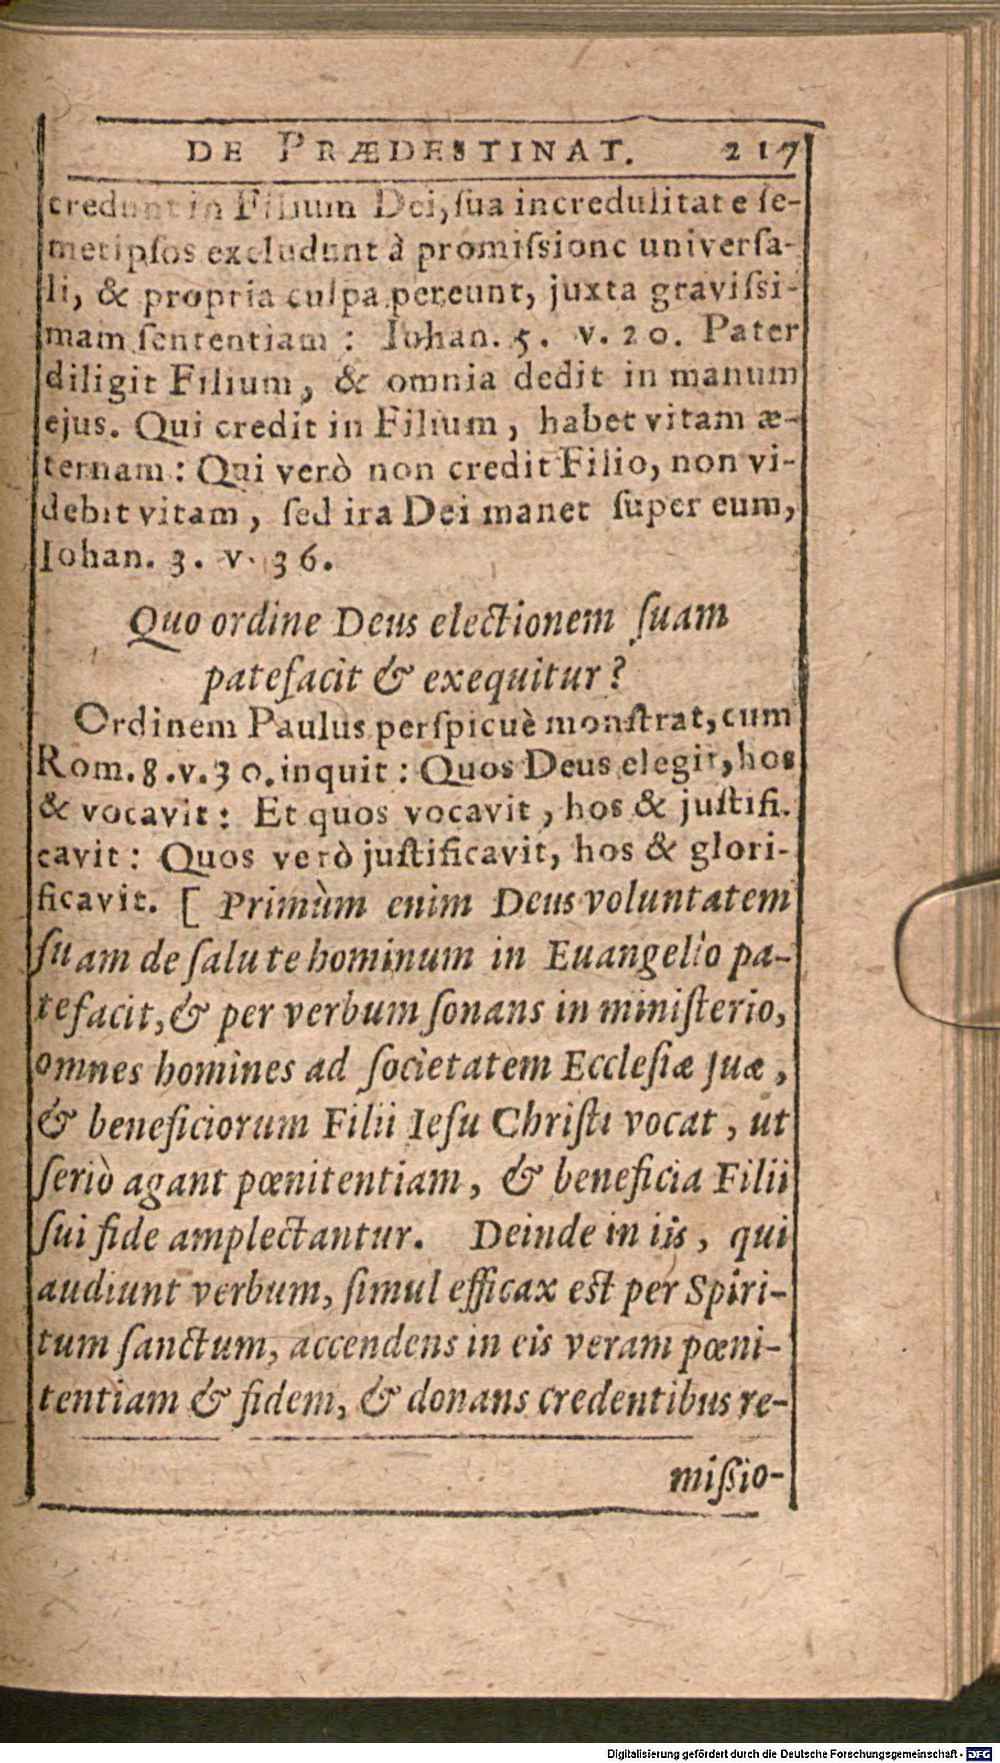 DE PRÆDESTINAT. 217
credunt in Filium Dei, ſua incredulitate ſe-
metipſos excludunt à promiſsione univerſa-
li, & propria culpa pereunt, juxta graviſsi-
mam ſententiam: Iohan. 5. v. 20. Pater
diligit Filium, & omnia dedit in manum
ejus. Qui credit in Filium, habet vitam æ-
ternam: Qui verò non credit Filio, non vi-
debit vitam, ſed ira Dei manet ſuper eum,
Iohan. 3. v. 36.
Quo ordine Deus electionem ſuam
patefacit & exequitur?
Ordinem Paulus perſpicuè monſtrat, cum
Rom. 8. v. 30. inquit: Quos Deus elegit, hos
& vocavit: Et quos vocavit, hos & juſtifi.
cavit: Quos verò juſtificavit, hos & glori-
ficavit. [ Primùm enim Deus voluntatem
ſuam de ſalute hominum in Euangelio pa-
tefacit, & per verbum ſonans in miniſterio,
omnes homines ad ſocietatem Eccleſiæ ſuæ,
& beneficiorum Filii Ieſu Chriſti vocat, ut
ſeriò agant pœnitentiam, & beneficia Filii
ſui fide amplectantur. Deinde in iis, qui
audiunt verbum, ſimul efficax eſt per Spiri-
tum ſanctum, accendens in eis veram pœni-
tentiam & fidem, & donans credentibus re-
miſsio-
Digitalisierung gefördert durch die Deutsche Forschungsgemeinschaft - DFG